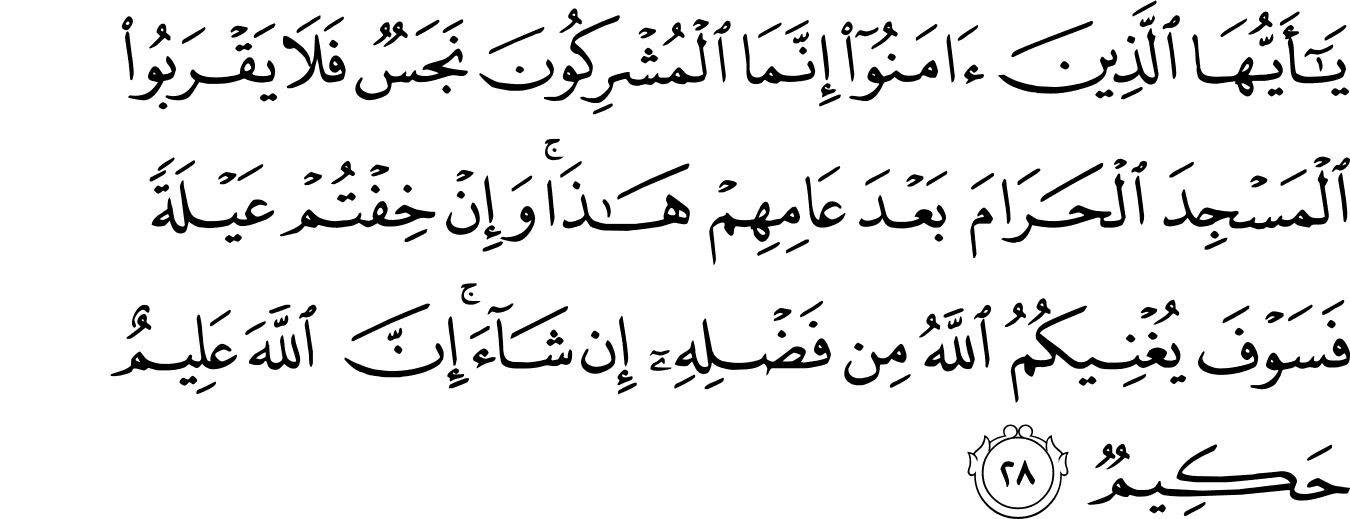 يَـٰٓأَيُّهَا ٱلَّذِينَ ءَامَنُوٓا۟ إِنَّمَا ٱلْمُشْرِكُونَ نَجَسٌ فَلَا يَقْرَبُوا۟
ٱلْمَسْجِدَ ٱلْحَرَامَ بَعْدَ عَامِهِمْ هَـٰذَا ۚ وَإِنْ خِفْتُمْ عَيْلَةً
فَسَوْفَ يُغْنِيكُمُ ٱللَّهُ مِن فَضْلِهِۦٓ إِن شَآءَ ۚ إِنَّ ٱللَّهَ عَلِيمٌ
حَكِيمٌ ٢٨